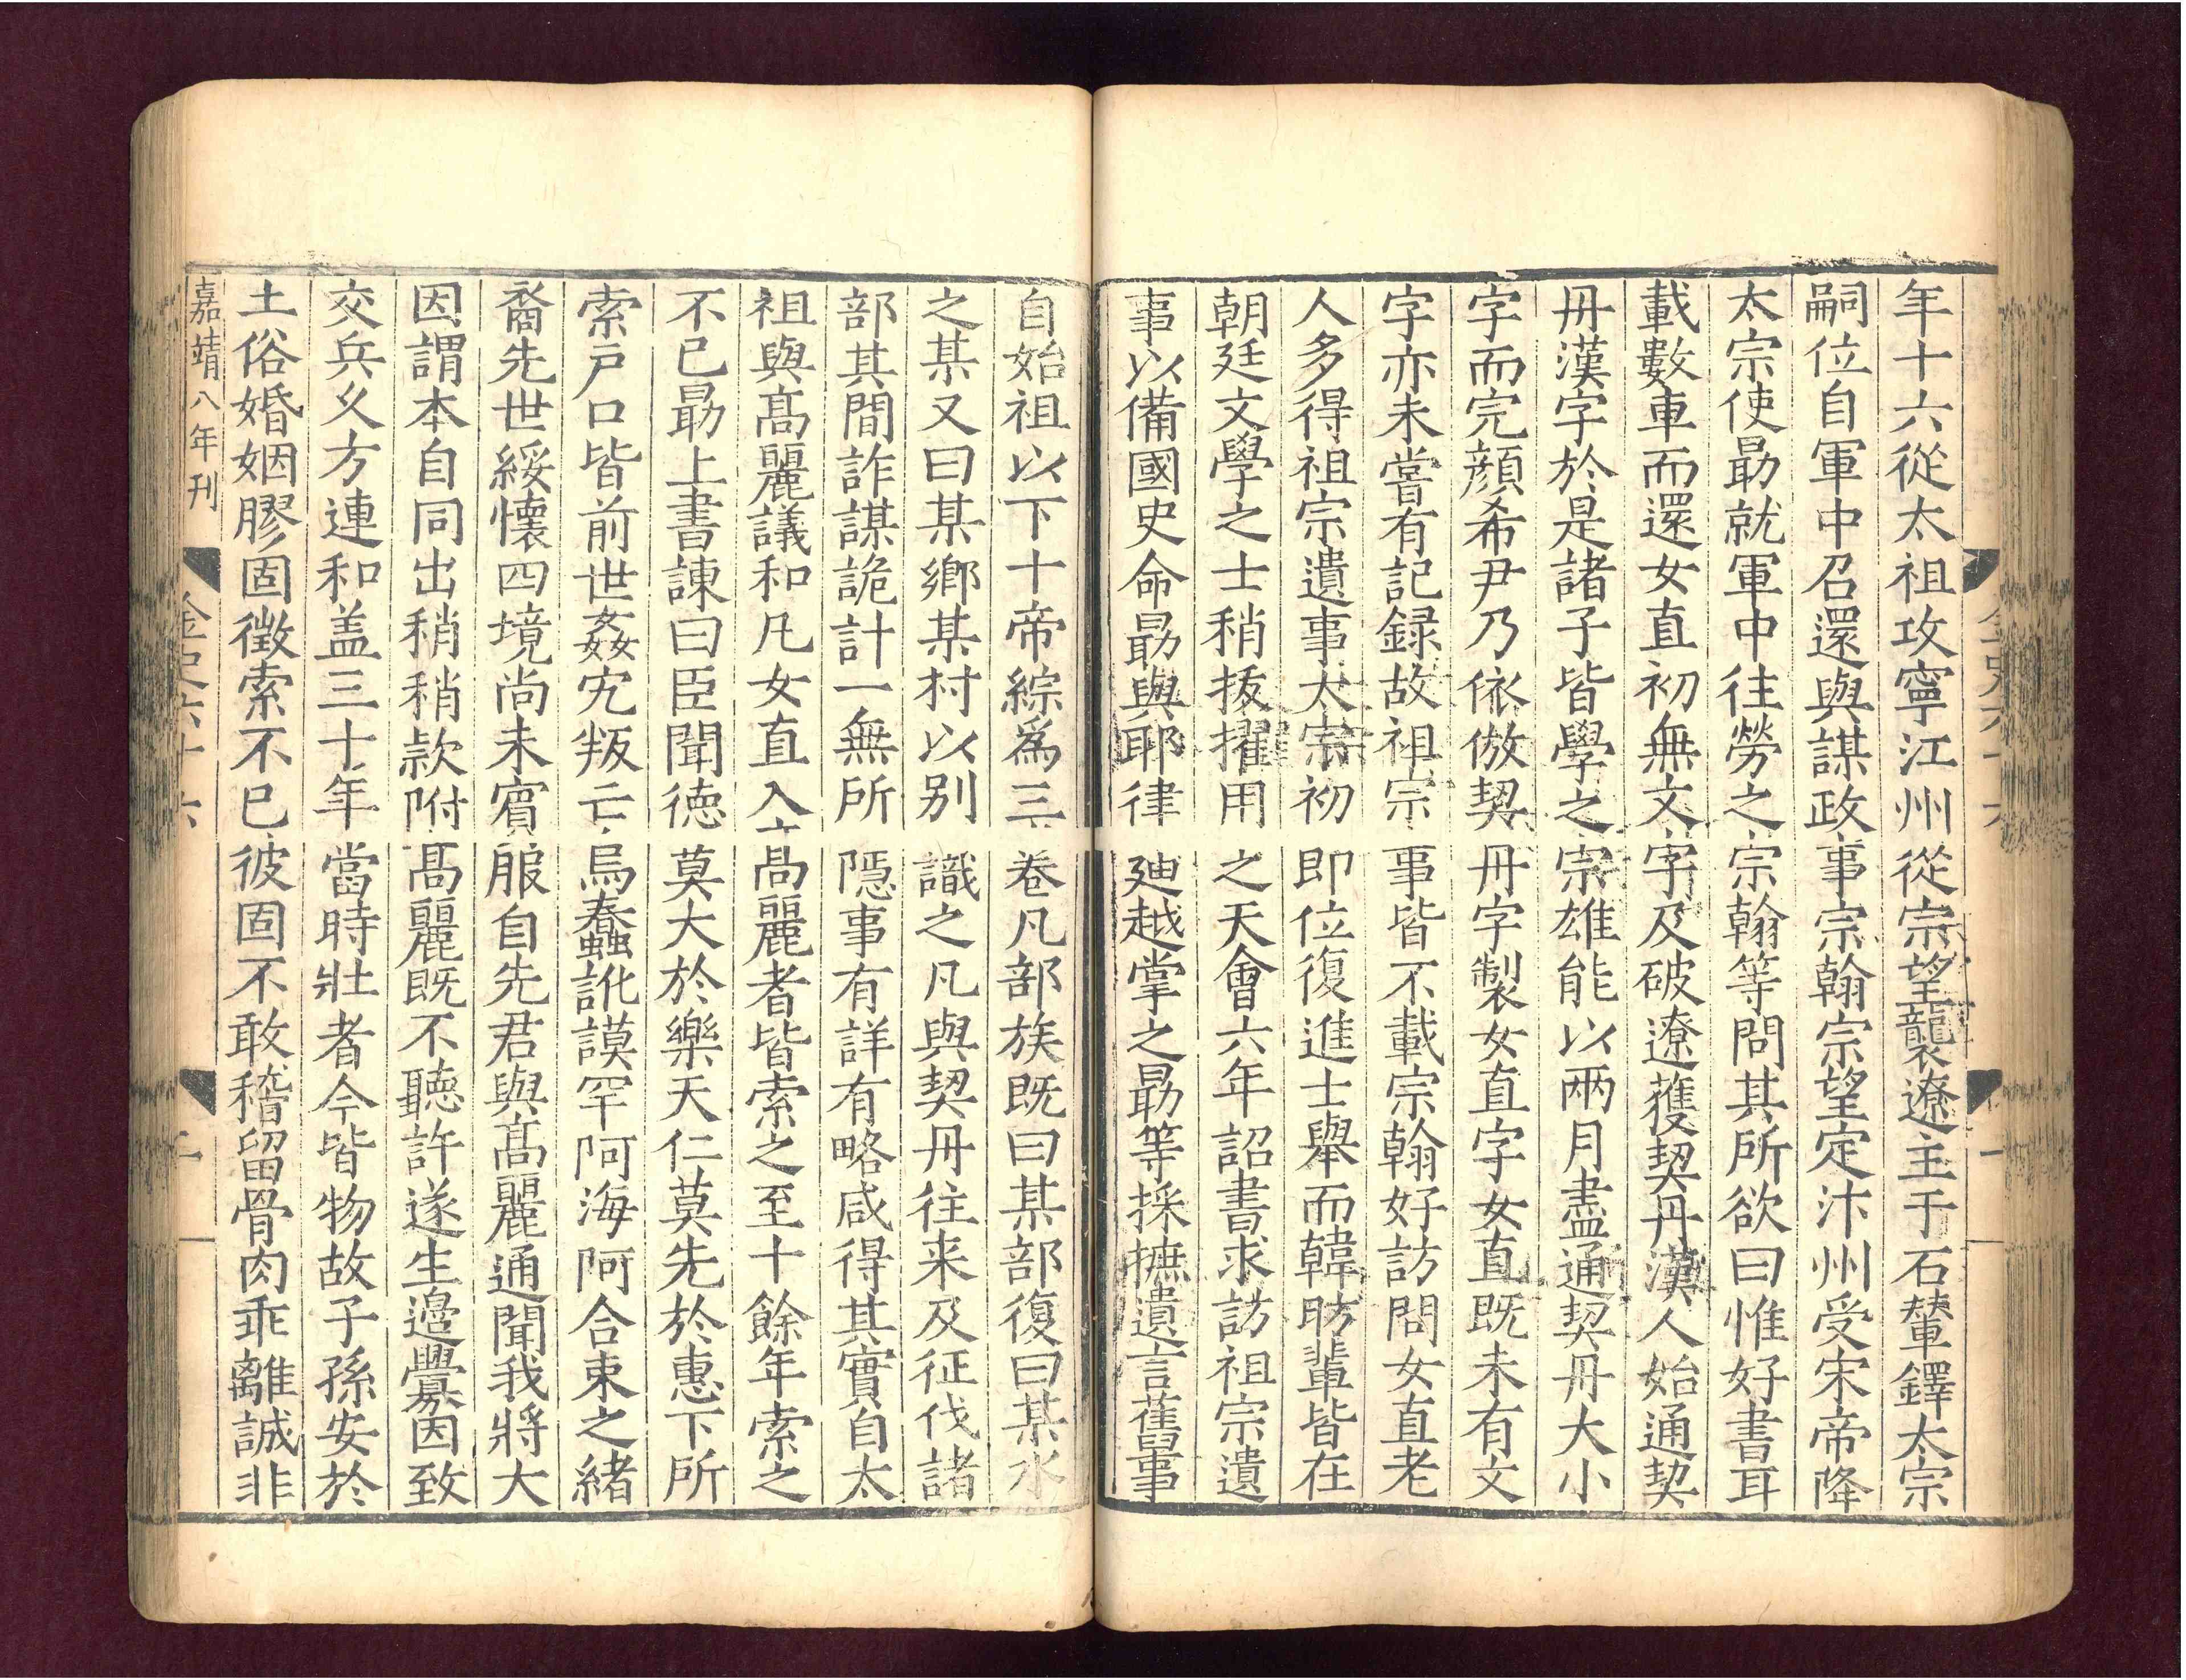 年十六從太祖攻寧江州從宗望襲遼主于石輦鐸太宗
嗣位自軍中召還與謀政事宗翰宗望定汴州受宋帝降
太宗使勗就軍中往勞之宗翰等問其所欲曰惟好書耳
載數車而還女直初無文字及破遼獲契丹漢人始通契
丹漢字於是諸子皆學之宗雄能以兩月盡通契丹大小
字而完顔希尹乃依倣契丹字製女直字女直既未有文
字亦未嘗有記録故祖宗事皆不載宗翰好訪問女直老
人多得祖宗遺事太宗初即位復進士舉而韓昉輩皆在
朝廷文學之士稍拔擢用之天會六年詔書求訪祖宗遺
事以備國史命勗與耶律迪越掌之勗等採摭遺言舊事
自始祖以下十帝綜爲三卷凡部族既曰某部復曰某水
之某又曰某鄉某村以别識之凡與契丹往来及征伐諸
部其間詐謀詭計一無所隱事有詳有略咸得其實自太
祖與髙麗議和凡女直入髙麗者皆索之至十餘年索之
不已勗上書諫曰臣聞德莫大於樂天仁莫先於惠下所
索戸口皆前世姦宄叛亡烏蠢訛謨罕阿海阿合束之緒
裔先世綏懷四境尚未賓服自先君與髙麗通聞我將大
因謂本自同出稍稍款附髙麗既不聽許遂生邊釁因致
交兵乆方連和盖三十年當時壯者今皆物故子孫安於
土俗婚姻膠固徵索不已彼固不敢稽留骨肉乖離誠非
嘉靖八年刊
金史六十六
二